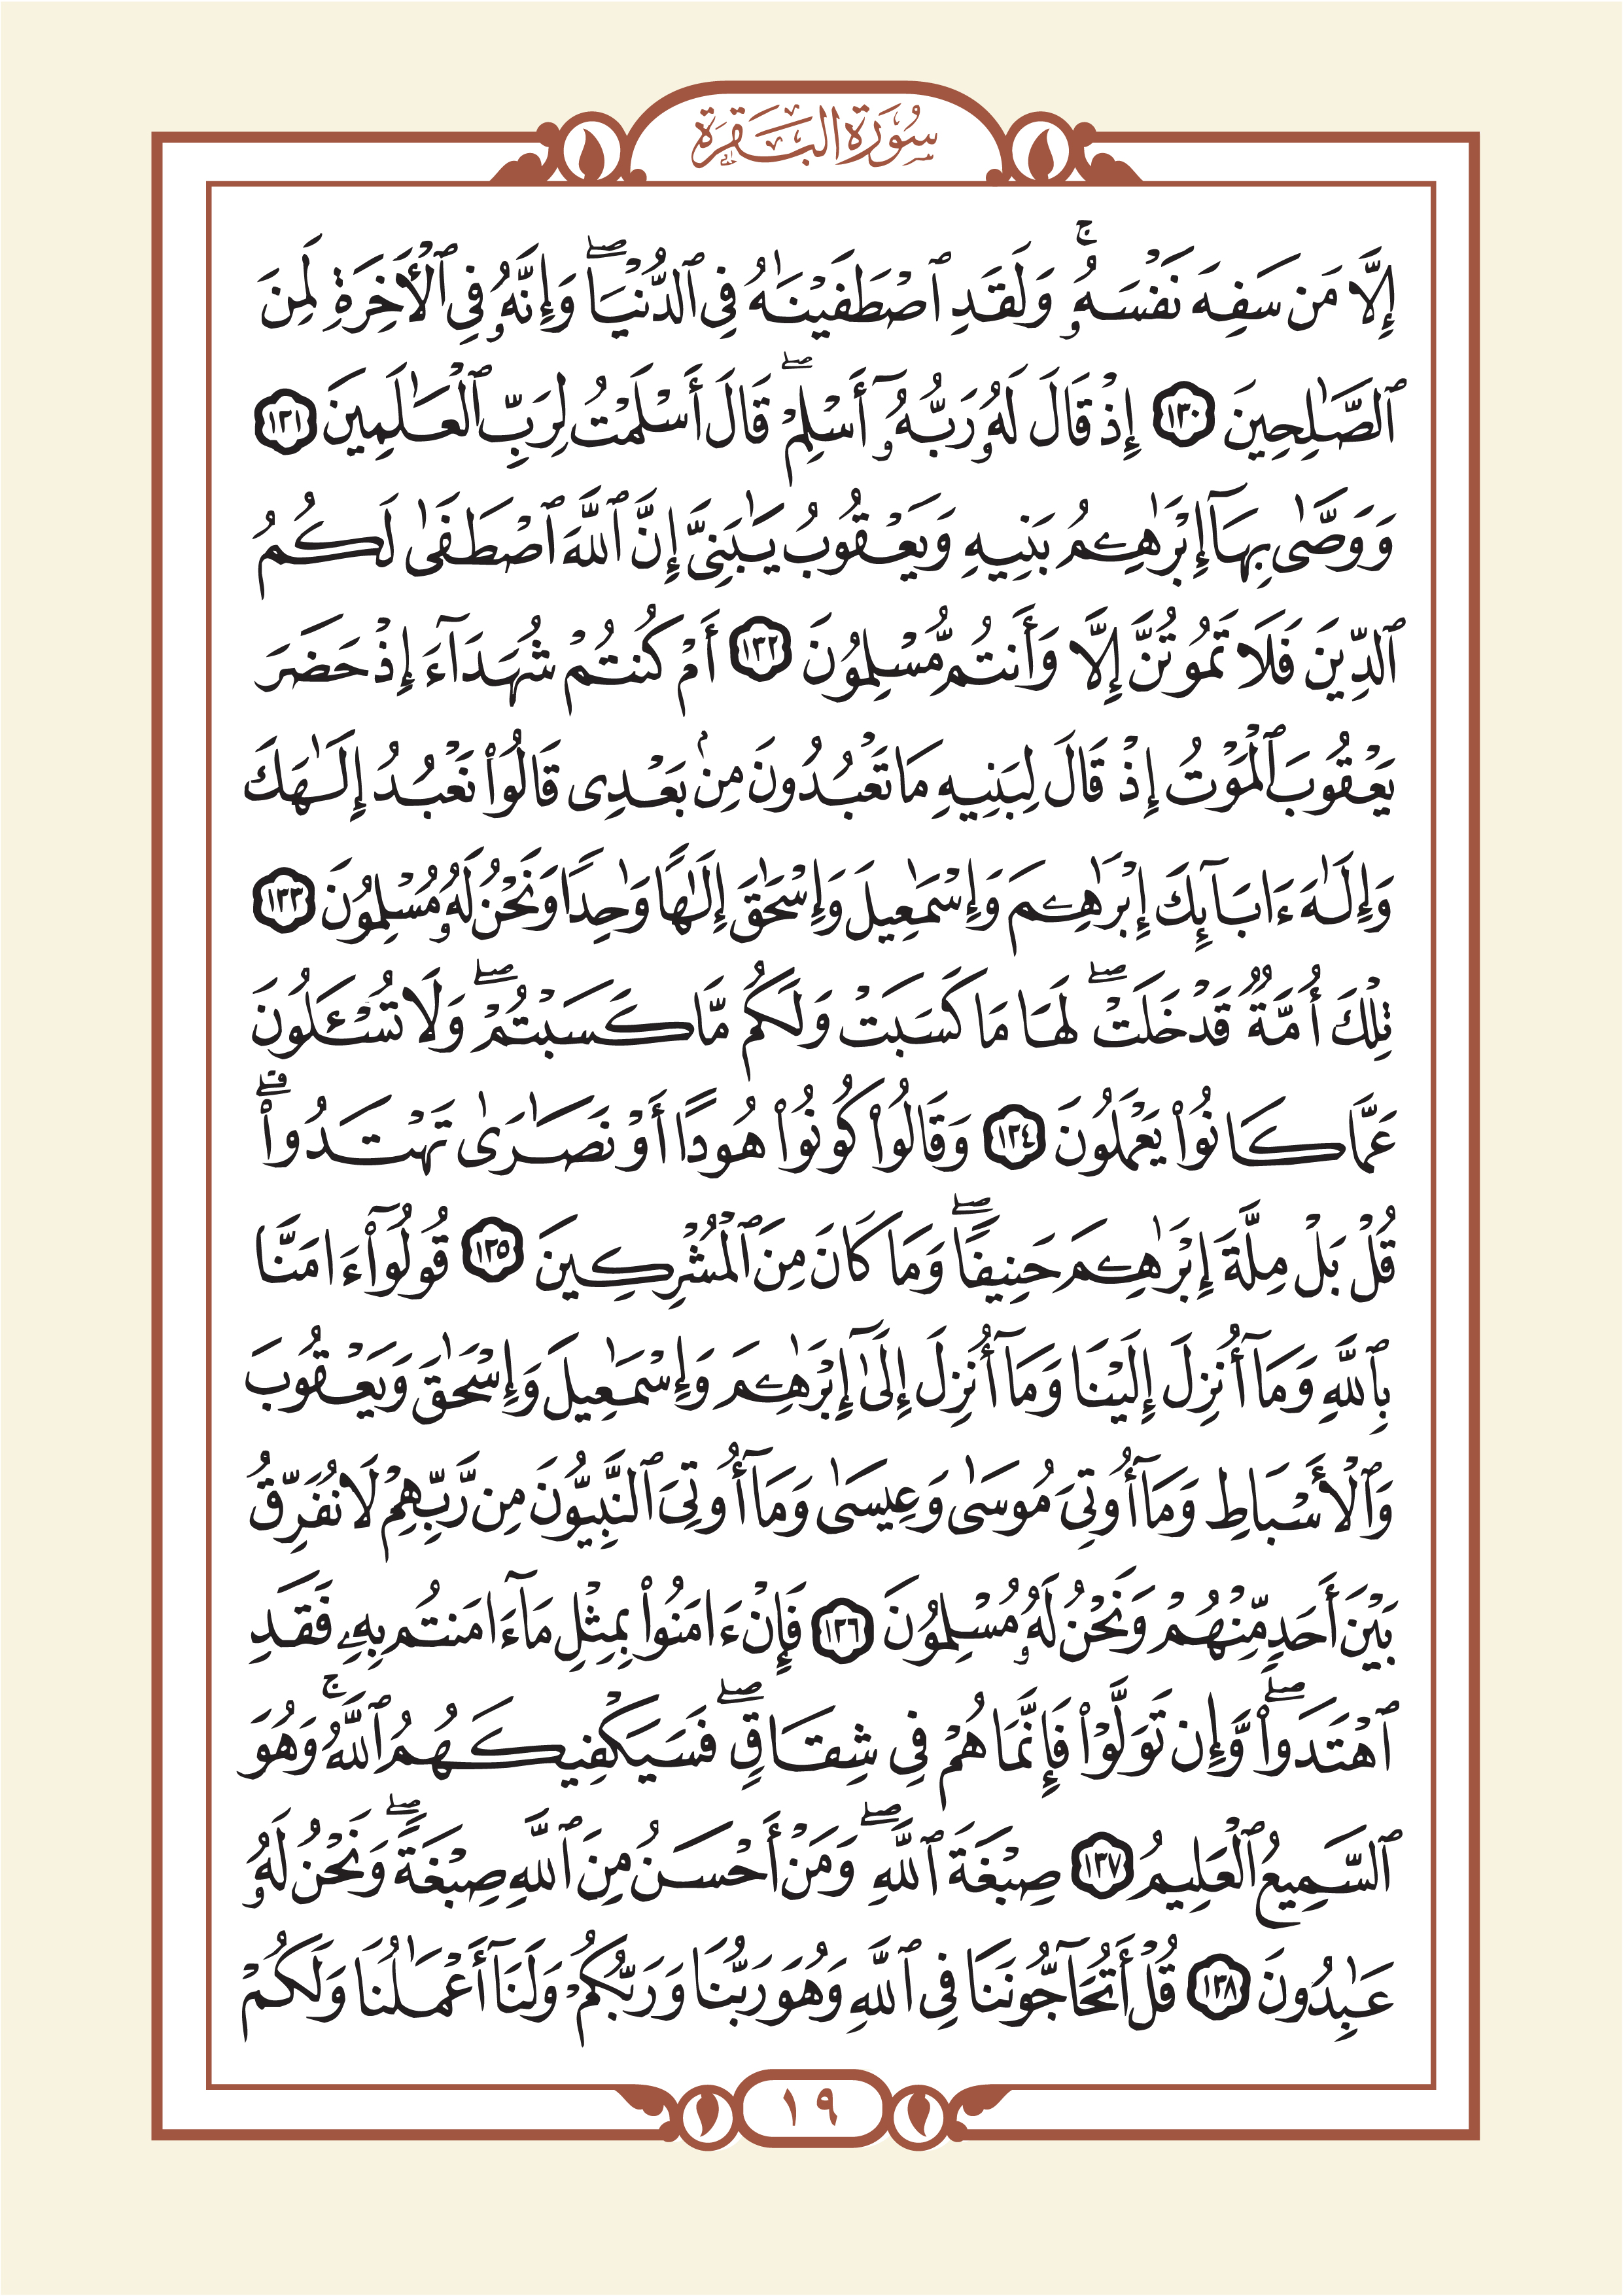 سُورَةُ البَقَرَةِ
إِلَّا مَن سَفِهَ نَفْسَهُۥۚ وَلَقَدِ ٱصْطَفَيْنَٰهُ فِي ٱلدُّنْيَاۖ وَإِنَّهُۥ فِي ٱلْأَخِرَةِ لَمِنَ
ٱلصَّٰلِحِينَ ١٣٠ إِذْ قَالَ لَهُۥ رَبُّهُۥٓ أَسْلِمْۖ قَالَ أَسْلَمْتُ لِرَبِّ ٱلْعَٰلَمِينَ ١٣١
وَوَصَّىٰ بِهَآ إِبْرَٰهِۧمُ بَنِيهِ وَيَعْقُوبُ يَٰبَنِيَّ إِنَّ ٱللَّهَ ٱصْطَفَىٰ لَكُمُ
ٱلدِّينَ فَلَا تَمُوتُنَّ إِلَّا وَأَنتُم مُّسْلِمُونَ ١٣٢ أَمْ كُنتُمْ شُهَدَآءَ إِذْ حَضَرَ
يَعْقُوبَ ٱلْمَوْتُ إِذْ قَالَ لِبَنِيهِ مَا تَعْبُدُونَ مِنۢ بَعْدِى قَالُوا۟ نَعْبُدُ إِلَٰهَكَ
وَإِلَٰهَ ءَابَآئِكَ إِبْرَٰهِۧمَ وَإِسْمَٰعِيلَ وَإِسْحَٰقَ إِلَٰهًا وَٰحِدًا وَنَحْنُ لَهُۥ مُسْلِمُونَ ١٣٣
تِلْكَ أُمَّةٌ قَدْ خَلَتْۖ لَهَا مَا كَسَبَتْ وَلَكُم مَّا كَسَبْتُمْۖ وَلَا تُسْـَٔلُونَ
عَمَّا كَانُوا۟ يَعْمَلُونَ ١٣٤ وَقَالُوا۟ كُونُوا۟ هُودًا أَوْ نَصَٰرَىٰ تَهْتَدُوا۟ۗ
قُلْ بَلْ مِلَّةَ إِبْرَٰهِۧمَ حَنِيفًاۖ وَمَا كَانَ مِنَ ٱلْمُشْرِكِينَ ١٣٥ قُولُوٓا۟ ءَامَنَّا
بِٱللَّهِ وَمَآ أُنزِلَ إِلَيْنَا وَمَآ أُنزِلَ إِلَىٰٓ إِبْرَٰهِۧمَ وَإِسْمَٰعِيلَ وَإِسْحَٰقَ وَيَعْقُوبَ
وَٱلْأَسْبَاطِ وَمَآ أُوتِيَ مُوسَىٰ وَعِيسَىٰ وَمَآ أُوتِيَ ٱلنَّبِيُّونَ مِن رَّبِّهِمْ لَا نُفَرِّقُ
بَيْنَ أَحَدٍ مِّنْهُمْ وَنَحْنُ لَهُۥ مُسْلِمُونَ ١٣٦ فَإِنْ ءَامَنُوا۟ بِمِثْلِ مَآ ءَامَنتُم بِهِۦ فَقَدِ
ٱهْتَدَوا۟ۖ وَّإِن تَوَلَّوْا۟ فَإِنَّمَا هُمْ فِي شِقَاقٍۖ فَسَيَكْفِيكَهُمُ ٱللَّهُۚ وَهُوَ
ٱلسَّمِيعُ ٱلْعَلِيمُ ١٣٧ صِبْغَةَ ٱللَّهِۖ وَمَنْ أَحْسَنُ مِنَ ٱللَّهِ صِبْغَةًۖ وَنَحْنُ لَهُۥ
عَٰبِدُونَ ١٣٨ قُلْ أَتُحَآجُّونَنَا فِي ٱللَّهِ وَهُوَ رَبُّنَا وَرَبُّكُمْ وَلَنَآ أَعْمَٰلُنَا وَلَكُمْ
١٩